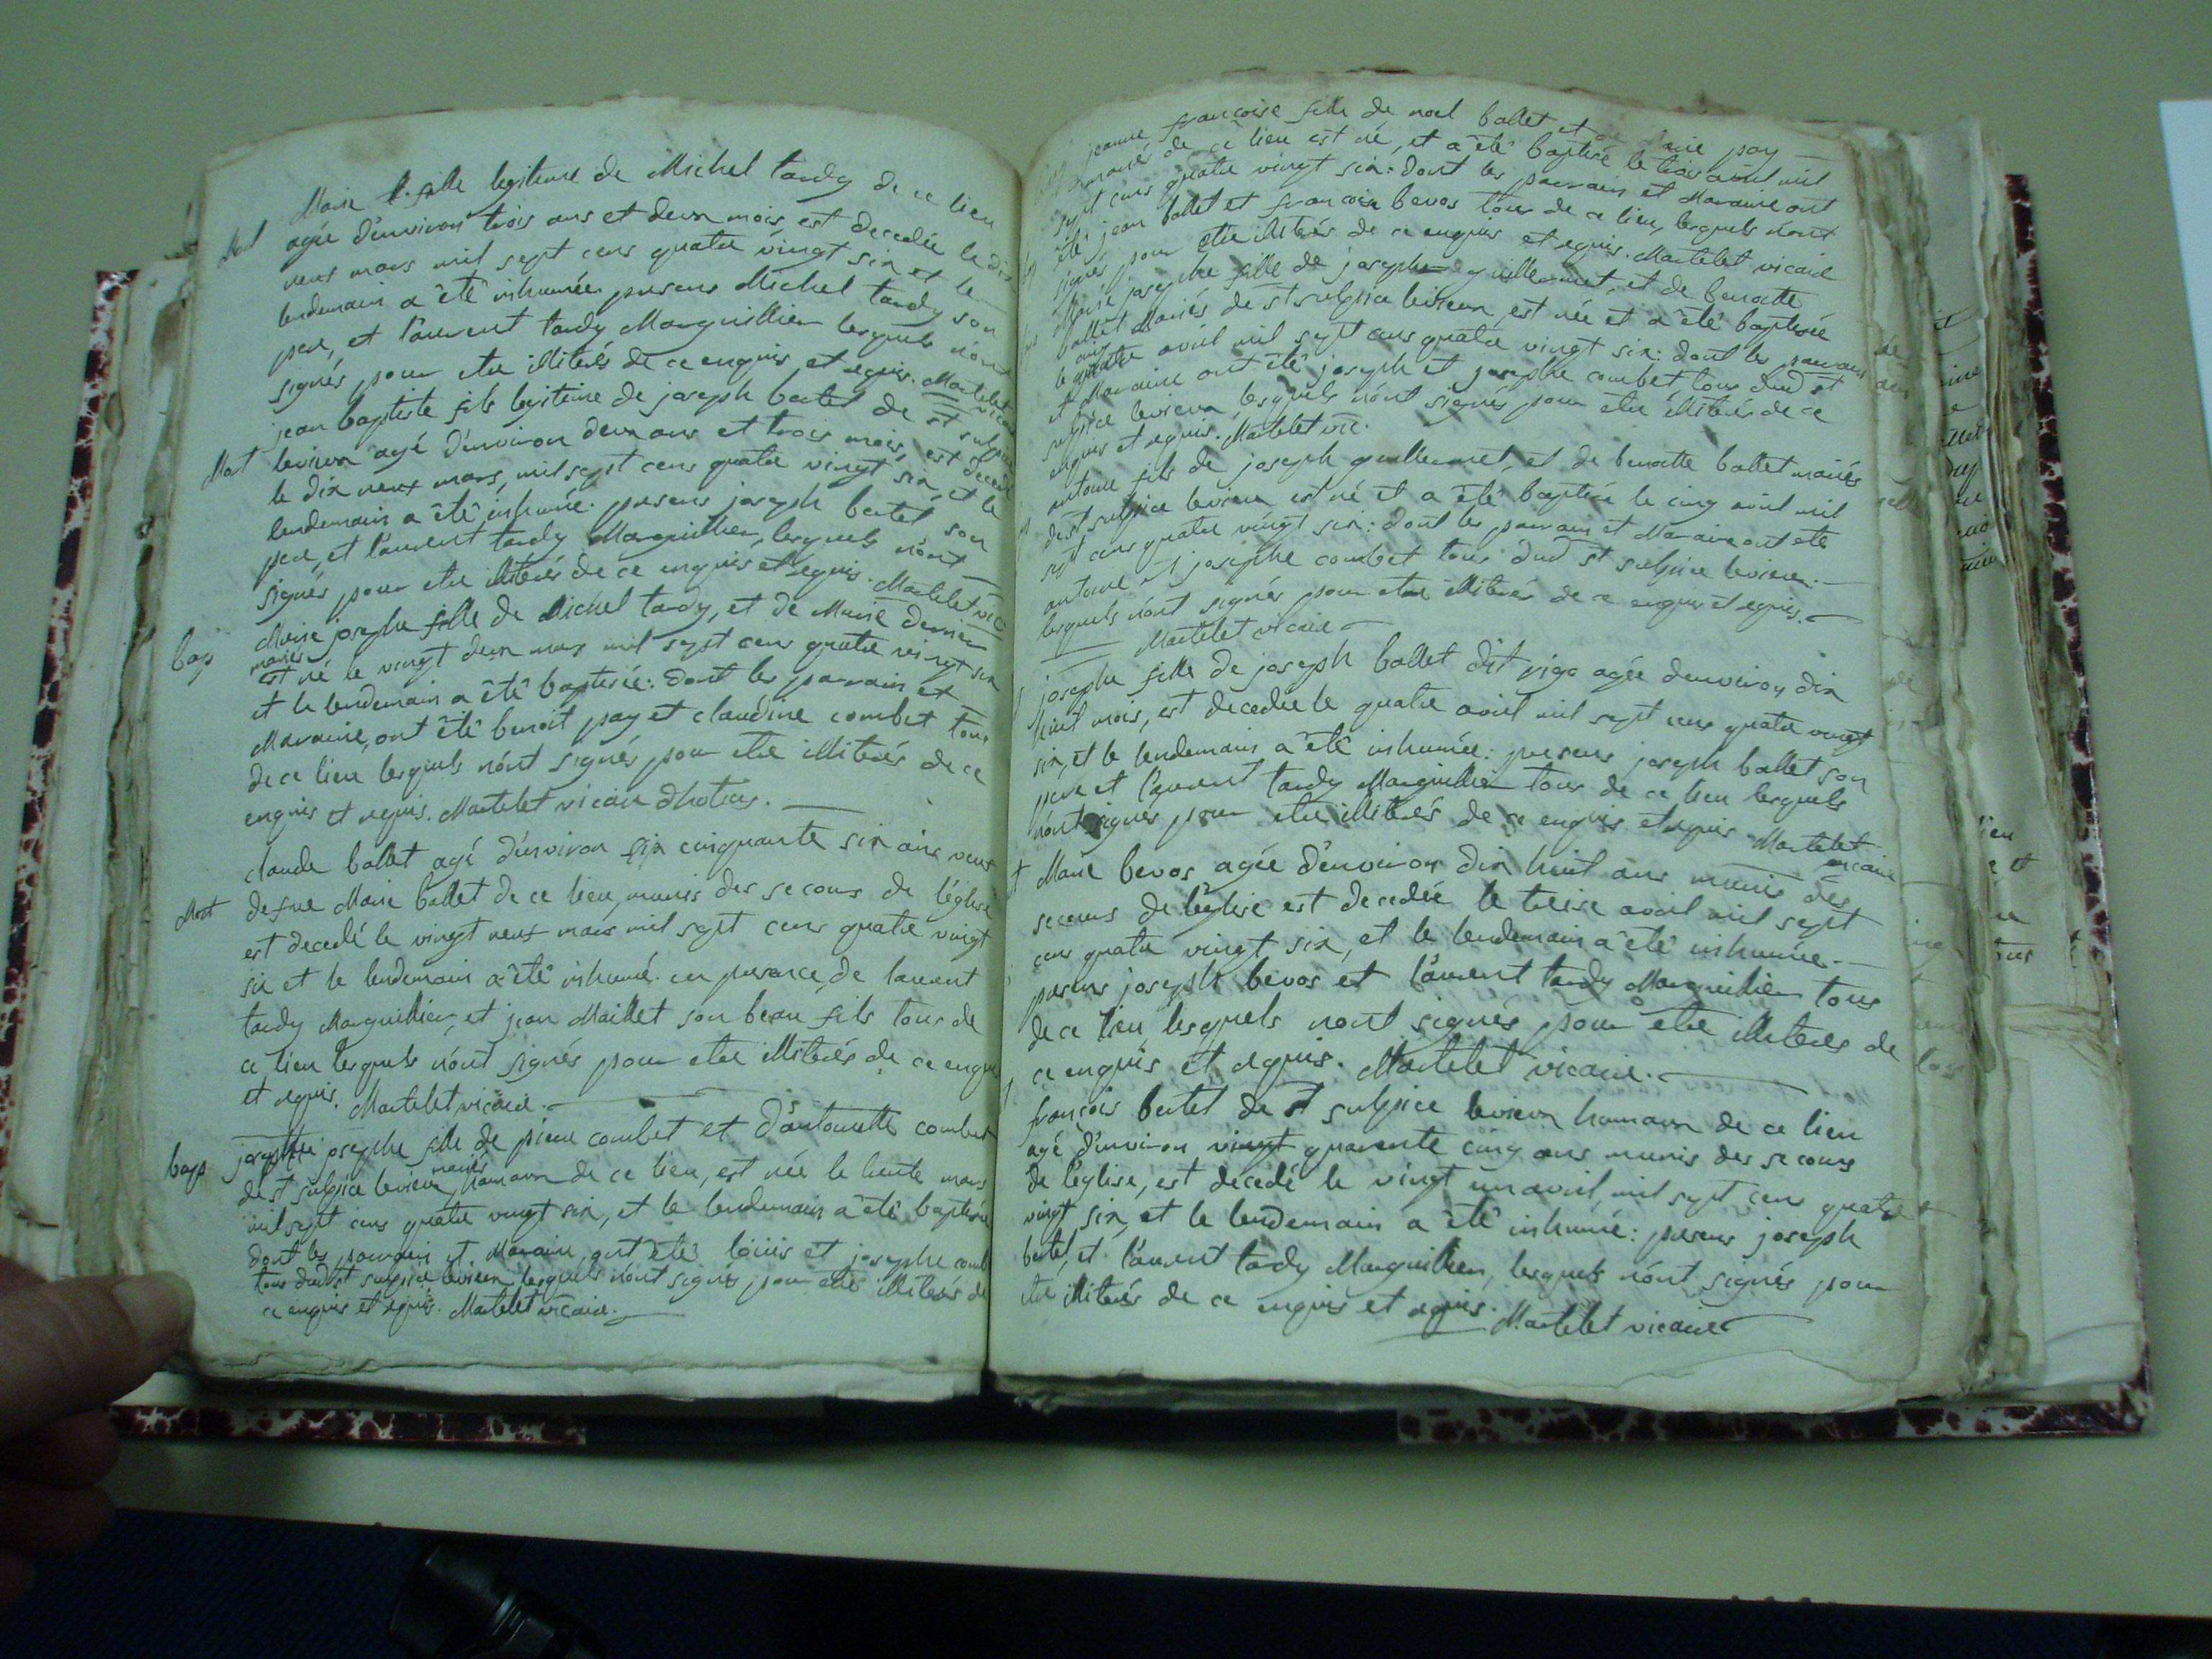 Marie fille legitime de Michel tardy de ce lieu
Mort agée d'environ trois ans et deux mois est decedée le dix
neuf mars mil sept cens quatre vingt six et le
lendemain a été inhumée presens Michel tardy son
pere, et laurent tardy Marguillier lesquels n'ont
signés pour etre illiterés de ce enquis et requis. Martelet vicaire
jean baptiste fils legitime de joseph bertet de st sulpice
Mort levieux agé d'environ deux ans et trois mois, est decedé
le dix neuf mars, mil sept cens quatre vingt six, et le
lendemain a été inhumé. presens joseph bertet son
pere, et laurent tardy Marguillier, lesquels n'ont
signés pour etre illiterés de ce enquis et requis. Martelet vic.
bap Marie josephe fille de Michel tardy, et de Marie
mariés
est né le vingt deux mars mil sept cens quatre vingt six
et le lendemain a été baptisée: dont les parrain et
Maraine, ont été benoit pay et claudine combet tous
de ce lieu lesquels n'ont signés pour etre illiterés de ce
enquis et requis. Martelet vicaire
claude ballet agé d'environ six cinquante six ans veuf
Mort de feue Marie ballet de ce lieu, munis des secours de l'église
est decedé le vingt neuf mars mil sept cens quatre vingt
six et le lendemain a été inhumé. en presence de laurent
tardy Marguillier, et jean Maillet son beau fils tous de
ce lieu lesquels n'ont signés pour etre illiterés de ce enquis
et requis. Martelet vicaire.
bap josephe josephe fille de pierre combet et d'antoinette combet
mariés
de st sulpice levieux, hameau de ce lieu, est née le trente mars
mil sept cens quatre vingt six, et le lendemain a été baptisée
dont les parrain et Maraine, ont été loüis et josephe
tous dud st sulpice levieux lesquels n'ont signés pour etre illiterés de
ce enquis et requis. Martelet vicaire.
jeanne françoise fille de noel ballet et de Marie pay
mariés de ce lieu est né, et a été baptisé le trois avril mil
sept cens quatre vingt six: dont les parrain et Maraine ont
été jean ballet et françoise bevos tous de ce lieu, lesquels n'ont
signés pour etre illiterés de ce enquis et requis. Martelet vicaire
Marie josephe fille de joseph guillermet, et de benoitte
ballet mariés de st sulpice levieux, est née et a été baptisée
cinq
le quatre avril mil sept cens quatre vingt six: dont les parrain
et Maraine ont été joseph et josephe combet tous dud st
sulpice levieux, lesquels n'ont signés pour etre illiterés de ce
enquis et requis. Martelet vic.
antoine fils de joseph guillermet, et de benoitte ballet mariés
de st sulpice levieux est né et a été baptisé le cinq avril mil
sept cens quatre vingt six: dont les parrain et Maraine ont eté
antoine et josephe combet tous dud st sulpice levieux.
lesquels n'ont signés pour etre illiterés de ce enquis et requis.
Martelet vicaire
josephe fille de joseph ballet dit agée d'environ dix
huit mois, est decedée le quatre avril mil sept cens quatre vingt
six, et le lendemain a été inhumée: presens joseph ballet son
pere et laurent tardy Marguillier tous de ce lieu lesquels
n'ont signés pour etre illiterés de ce enquis et requis Martelet
vicaire
Marie bevos agée d'environ dix huit ans munis des
secours de l'église est decedée le treise avril mil sept
cens quatre vingt six, et le lendemain a été inhumée.
presens joseph bevos et laurent tardy Marguillier tous
de ce lieu, lesquels n'ont signés pour etre illiterés de
ce enquis et requis. Martelet vicaire.
françois bertet de st sulpice levieux hameau de ce lieu
agé d'environ vingt quarente cinq ans munis des secours
de l'église, est decedé le vingt un avril, mil sept cens quatre
vingt six, et le lendemain a été inhumé: presens joseph
bertet, et laurent tardy Marguillier, lesquels n'ont signés pour
etre illiterés de ce enquis et requis. Martelet vicaire